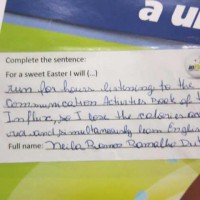 a u
Complete the sentence:
For a sweet Easter I will (...)
run for hours listening to the
Communication Activities Book of
Influx, so I lose the calories
and simultaneously learn English
Full name: Neila Ramos Ramalho